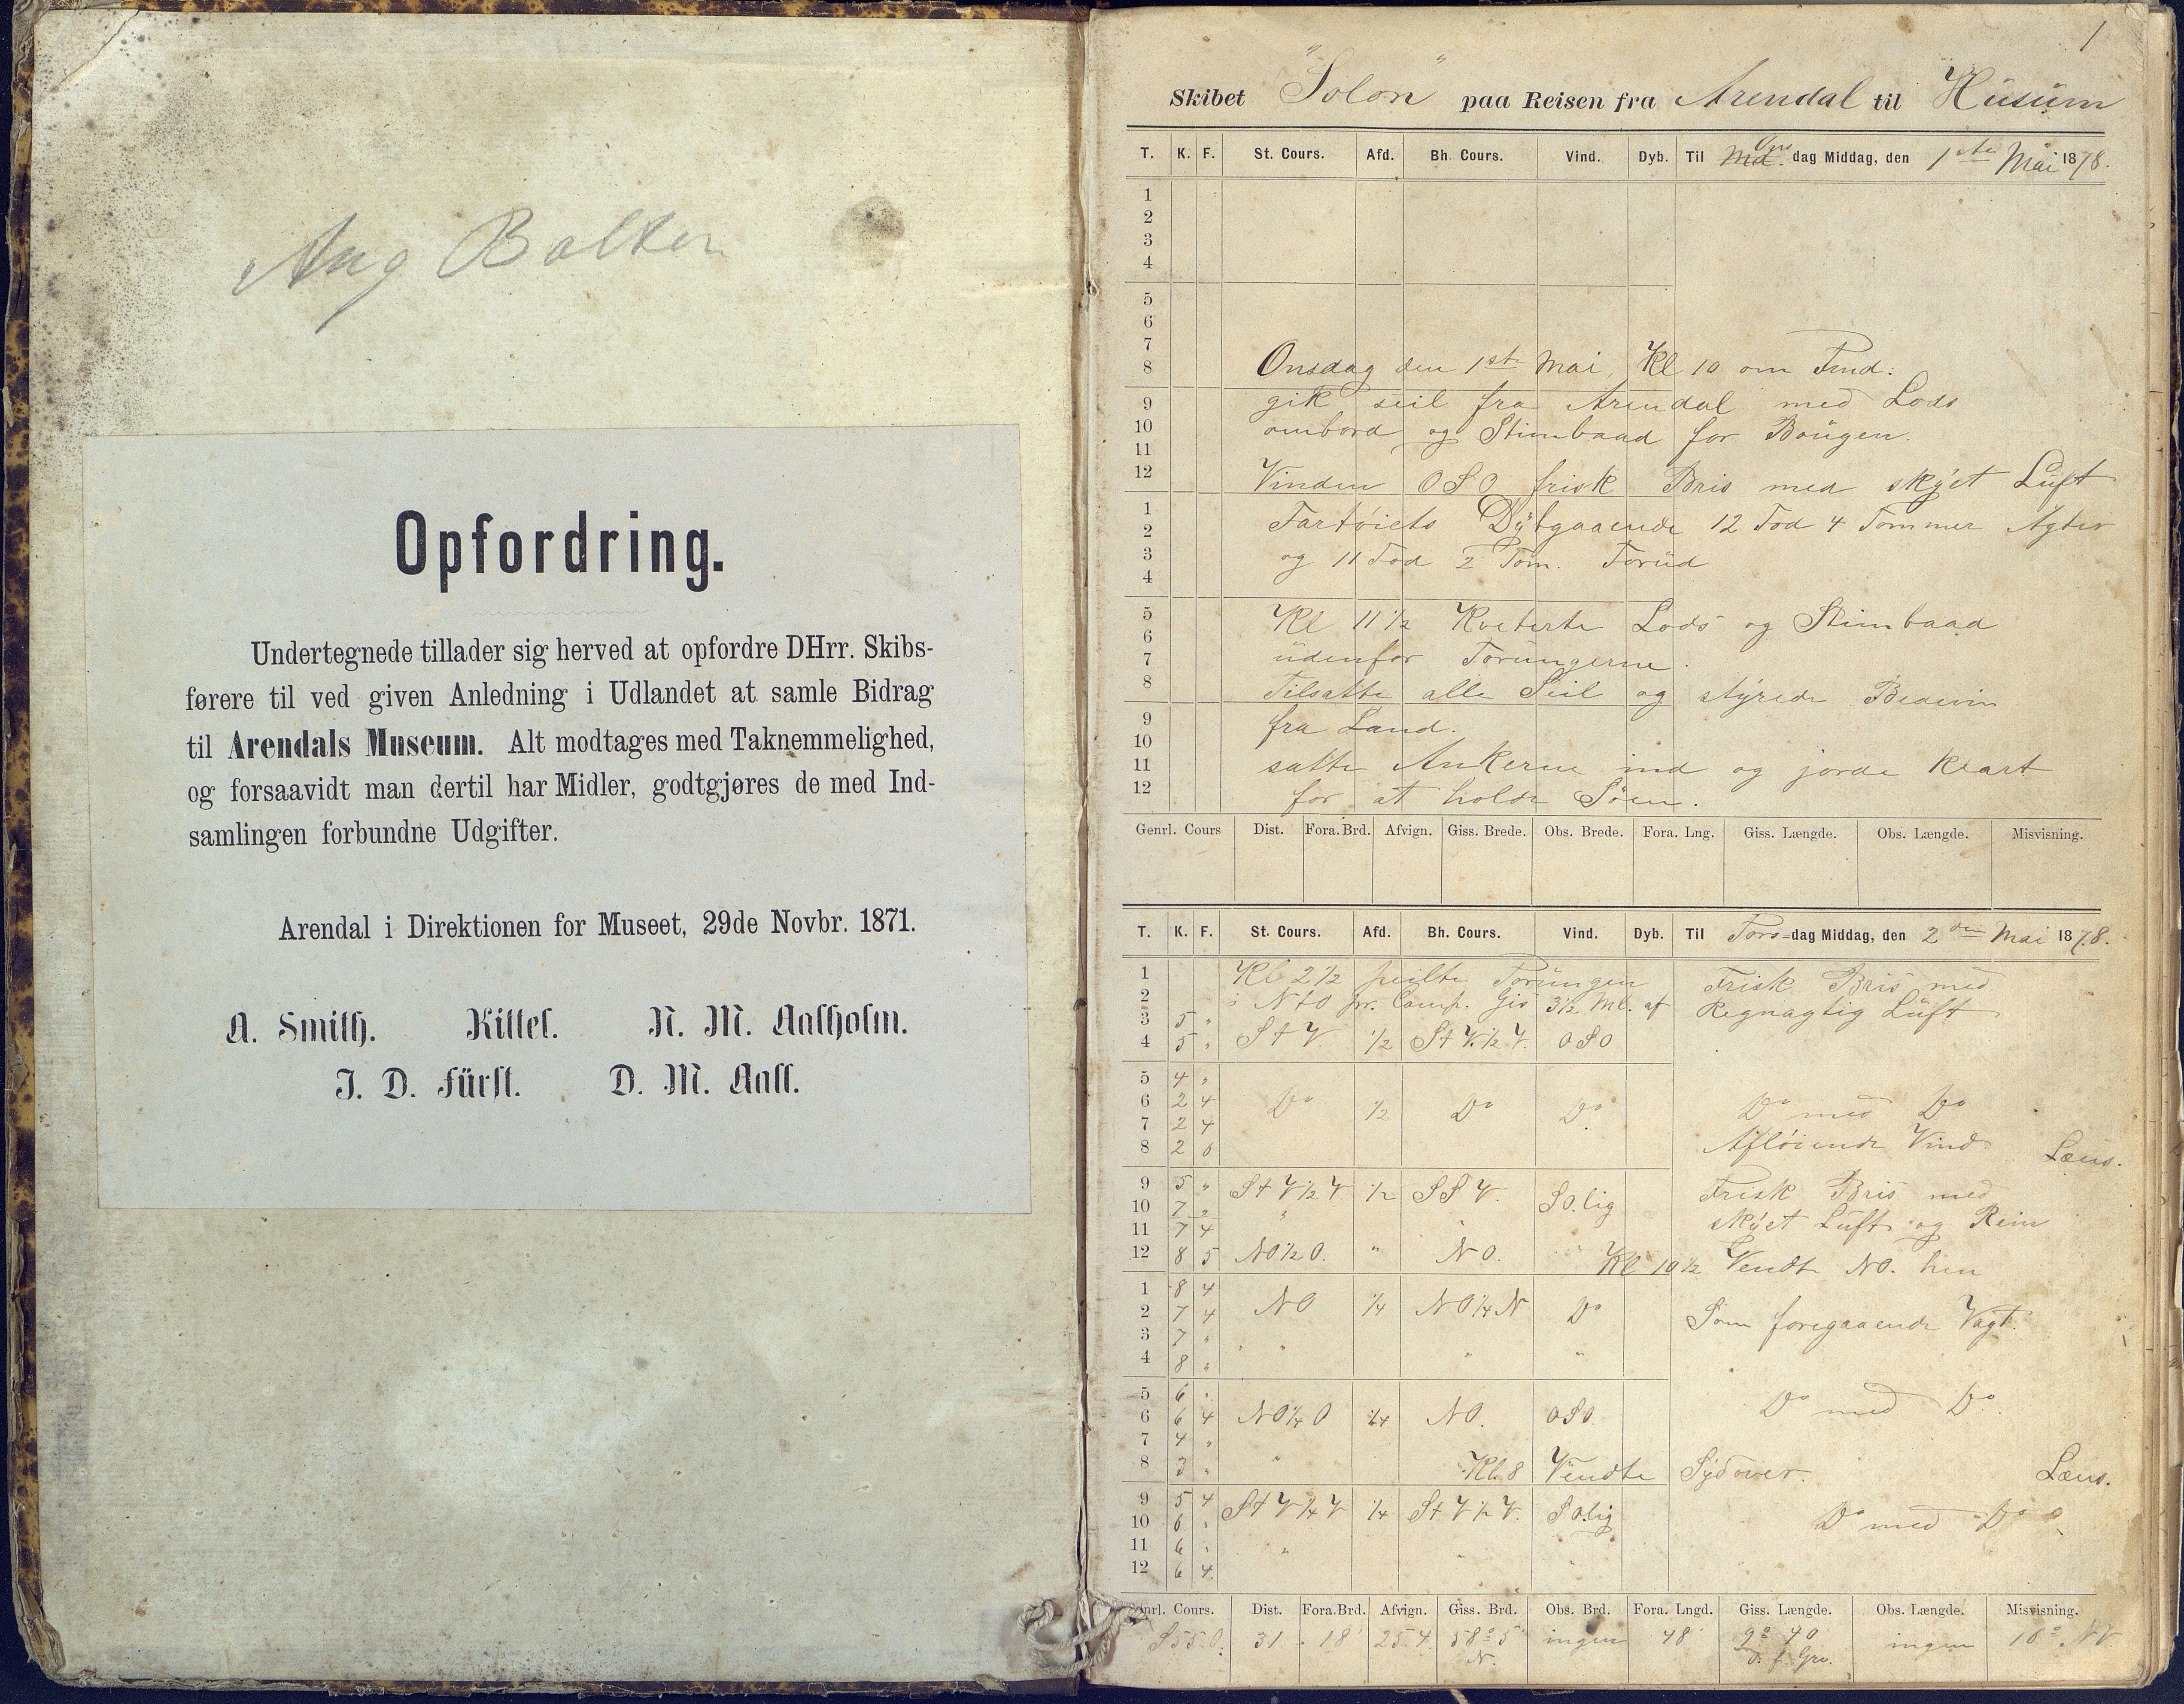 Aug Balken
Opfordring.
Undertegnede tillader sig herved at opfordre DHrr. Skibs-
førere til ved given Anledning i Udlandet at samle Bidrag
til Arendals Museum. Alt modtages med Taknemmelighed,
og forsaavidt man dertil har Midler, godtgjøres de med Ind-
samlingen forbundne Udgifter.
Arendal i Direktionen for Museet, 29de Novbr. 1871.
A. Smith. Kittel. N. M. Aalholm.
J. D. Fürst. D. M. Aall.
1
Skibet "Solon" paa Reisen fra Arendal til Husum
T. K. F. St. Cours. Afd. Bh. Cours. Vind. Dyb. Til Ons dag Middag, den 1ste Mai 1878.
1
2
3
4
5
6
7
8 Onsdag den 1ste Mai, Kl 10 om Fmd.
9 gik seil fra Arendal med Lods
10 ombord og Stimbaad for Bougen.
11
12 Vinden OSO frisk Bris med skyet Luft
1 Fartøiets Dybgaaende 12 Fod 4 Tommer Agter
2
3 og 11 Fod 2 Tom. Forud
4
5 Kl 11 1/2 Kveterte Lods og Stimbaad
6
7 udenfor Torungerne.
8 Tilsatte alle Seil og styrede Bedevin
9 fra Land.
10
11 satte Ankerne ind og jorde klart
12 for at holde Søen.
Genrl. Cours Dist. Fora. Brd. Afvign. Giss. Brede. Obs. Brede. Fora. Lng. Giss. Længde. Obs. Længde. Misvisning.
T. K. F. St. Cours. Afd. Bh. Cours. Vind. Dyb. Til Tors-dag Middag, den 2den Mai 1878.
1 Kl 2 1/2 peilte Torungen Frisk Bris med
2 i NtO pr. Comp. Gis 3 1/2 Ml. af Regnagtig Luft
3 5 "
4 5 " StV 1/2 StV 1/2 V. OSO
5 4 "
6 2 4 Do 1/2 Do Do Do med Do
7 2 4
8 2 6 Afløiende Vind Læns.
9 5 " StV 1/2 V 1/2 SSV. SO.lig Frisk Bris med
10 7 " "
11 7 4 skyet Luft og Rein
12 8 5 NO 1/2 O. " NO. " Kl 10 1/2 Vendte NO. hen
1 8 4
2 7 4 NO 1/4 NO 1/4 N Do Som foregaaende Vagt.
3 7 "
4 8 " " " "
5 6 "
6 6 4 NO 1/4 O 1/4 NO. OSO. Do med Do
7 4 "
8 3 " " Kl. 8 Vendte Sydover. Læns.
9 5 4 StV 1/4 V 1/4 StV 1/2 V. SO.lig
10 6 " Do med Do
11 6 " "
12 6 4
Genrl. Cours. Dist. Fora. Brd. Afvign. Giss. Brd. Obs. Brd. Fora. Lngd. Giss. Længde. Obs. Længde. Misvisning.
31 18' 25.4 58° 5' N. ingen 48' 9° 40 ingen 16° NV